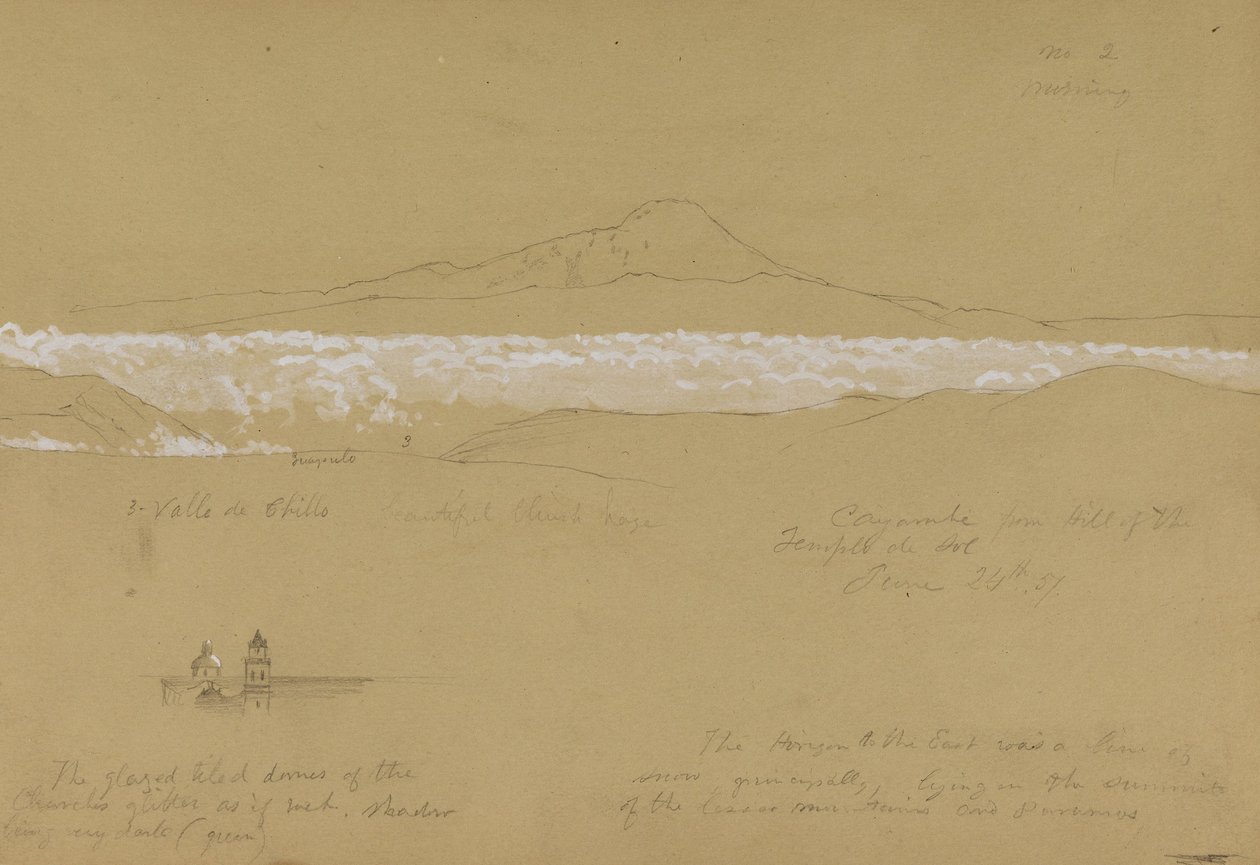 No 2
Morning
3
Guapulo
3- Valle de Chillo beautiful bluish haze
Cayambe from Hill of the
Templo de Sol
June 24th. 57.
The glazed tiled domes of the
Churches glitter as if wet. Shadow
being very dark (green)
The Horizon to the East was a line of
snow principally, lying on the summits
of the lesser mountains and Paramos